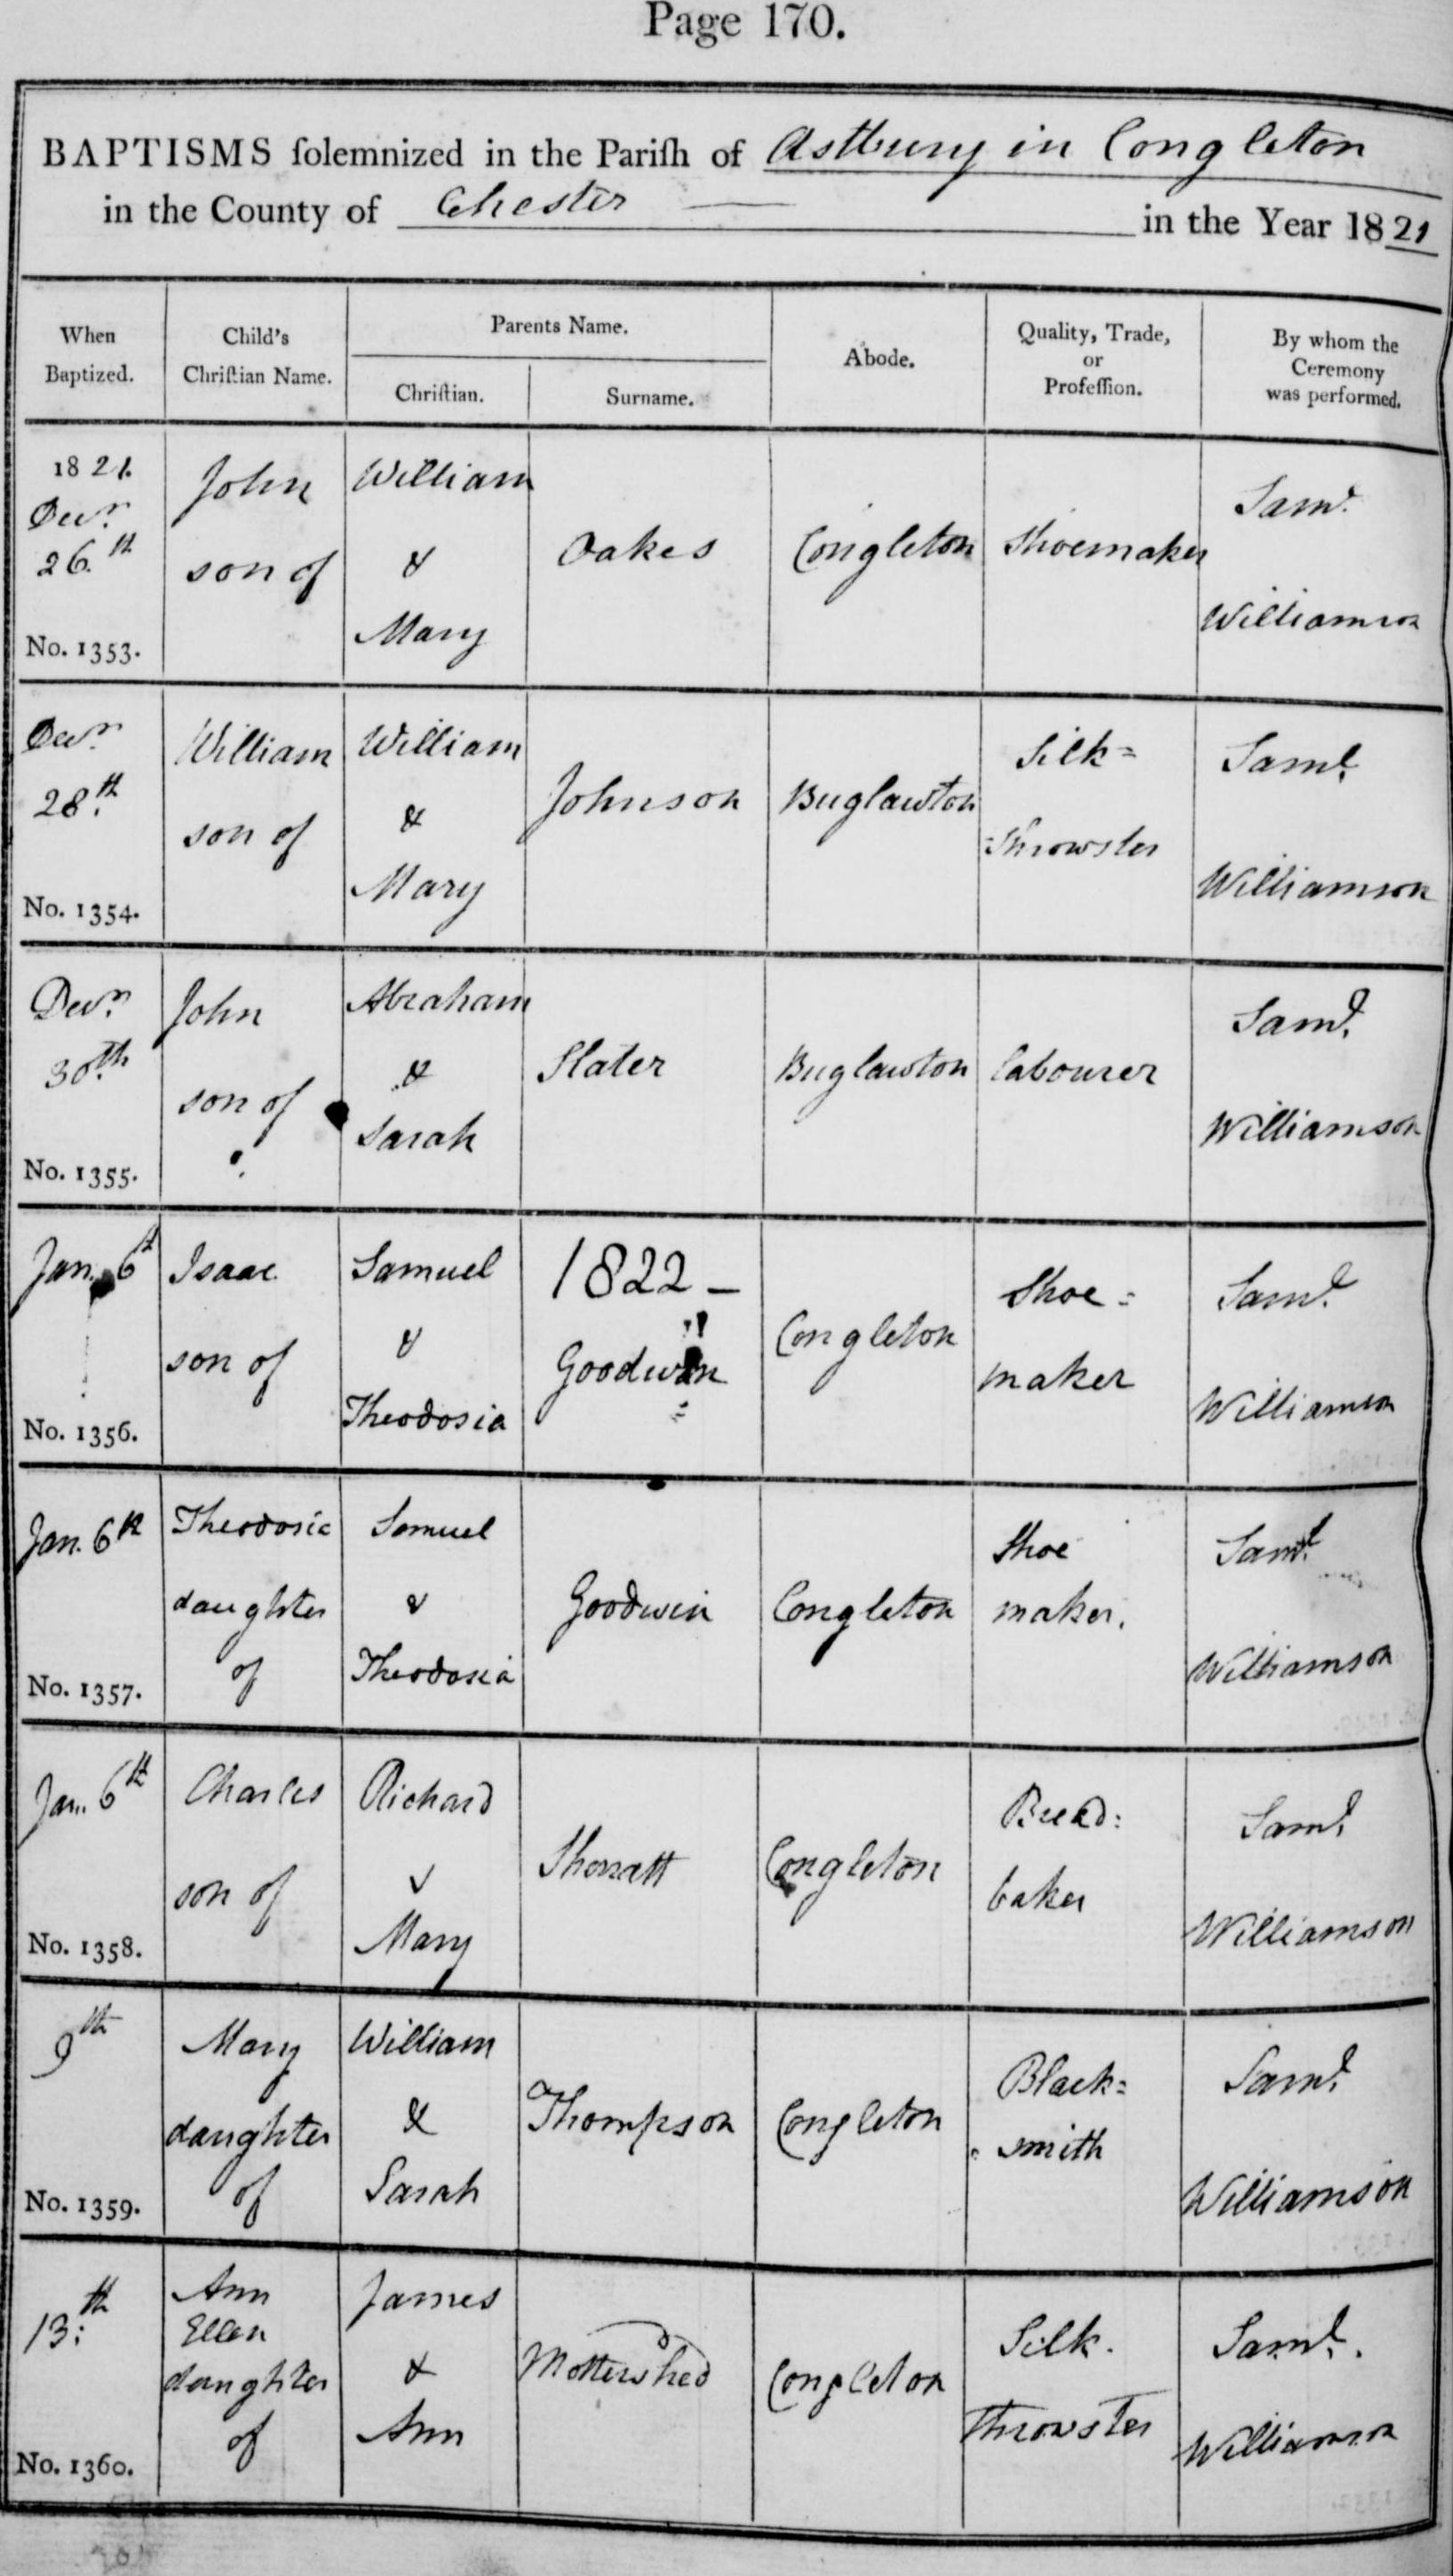 Page 170.
BAPTISMS ſolemnized in the Pariſh of Astbury in Congleton
in the County of Chester — in the Year 1821
When Baptized.
Child's Chriſtian Name.
Parents Name.
Chriſtian.
Surname.
Abode.
Quality, Trade, or Profeſſion.
By whom the Ceremony was performed.
1821.
Decr.
26.th
No. 1353.
John
son of
William
&
Mary
Oakes
Congleton
Shoemaker
Saml.
Williamson
Decr.
28.th
No. 1354.
William
son of
William
&
Mary
Johnson
Buglawton
Silk=
=Throwster
Saml.
Williamson
Decr.
30.th
No. 1355.
John
son of
Abraham
&
Sarah
Slater
Buglawton
labourer
Saml.
Williamson
Jan. 6th
No. 1356.
Isaac
son of
Samuel
&
Theodosia
1822 –
Goodwin
Congleton
Shoe=
maker
Saml.
Williamson
Jan. 6th
No. 1357.
Theodosia
daughter
of
Samuel
&
Theodosia
Goodwin
Congleton
Shoe
maker.
Saml.
Williamson
Jan. 6th
No. 1358.
Charles
son of
Richard
&
Mary
Sherratt
Congleton
Bread:
baker
Saml.
Williamson
9th
No. 1359.
Mary
daughter
of
William
&
Sarah
Thompson
Congleton
Black=
smith
Saml.
Williamson
13:th
No. 1360.
Ann
Ellen
daughter
of
James
&
Ann
Mottershed
Congleton
Silk.
Throwster
Saml.
Williamson